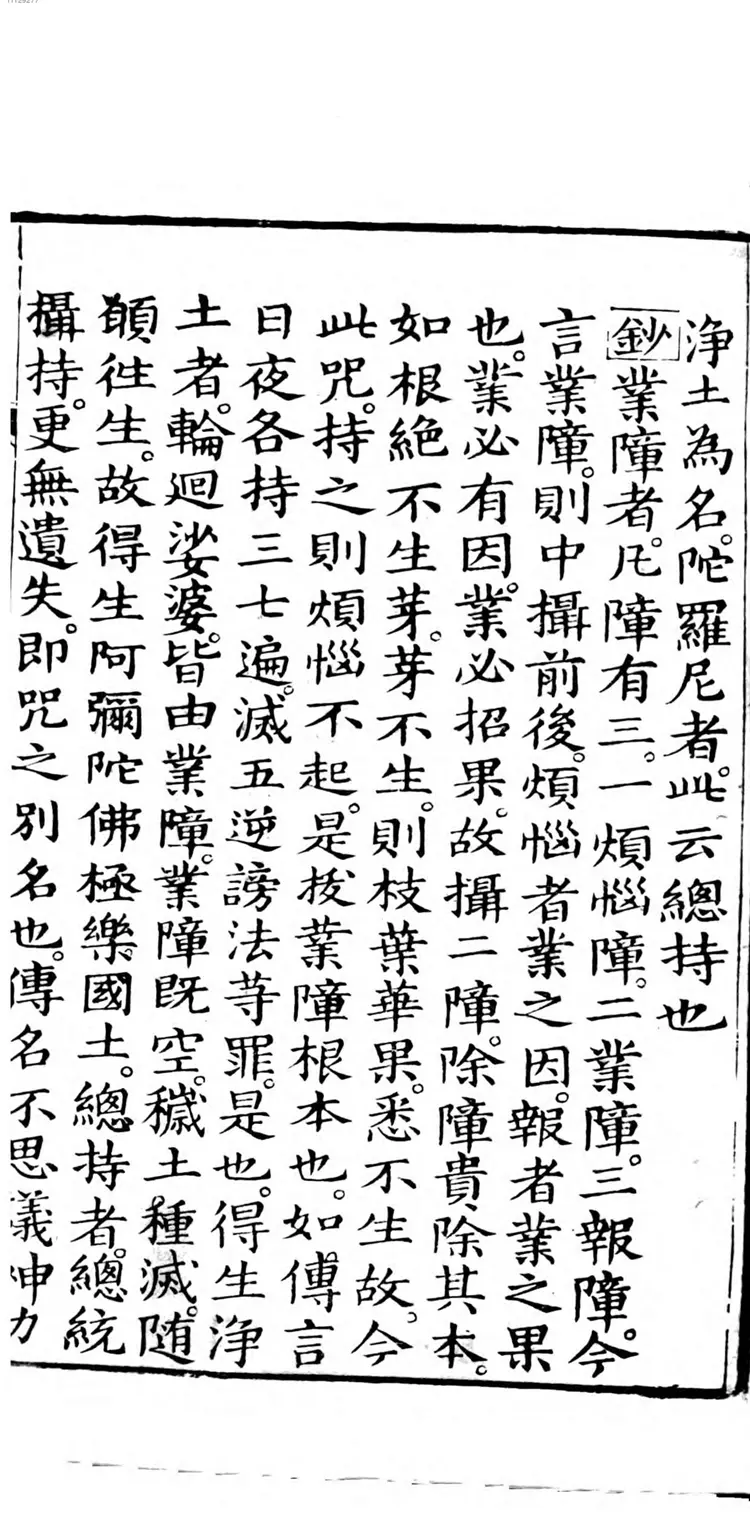 浄土為名。陀羅尼者。此云總持也
鈔業障者。凡障有三。一煩惱障。二業障。三報障。今
言業障。則中攝前後。煩惱者業之因。報者業之果
也。業必有因。業必招果。故攝二障。除障貴除其本。
如根絕不生芽。芽不生。則枝葉華果。悉不生故。今
此咒。持之則煩惱不起。是拔業障根本也。如傳言
日夜各持三七遍。滅五逆謗法等罪。是也。得生浄
土者。輪迴娑婆。皆由業障。業障既空。穢土種滅。随
願徃生。故得生阿彌陀佛極樂國土。總持者。總統
攝持。更無遺失。即咒之別名也。傳名不思議神力